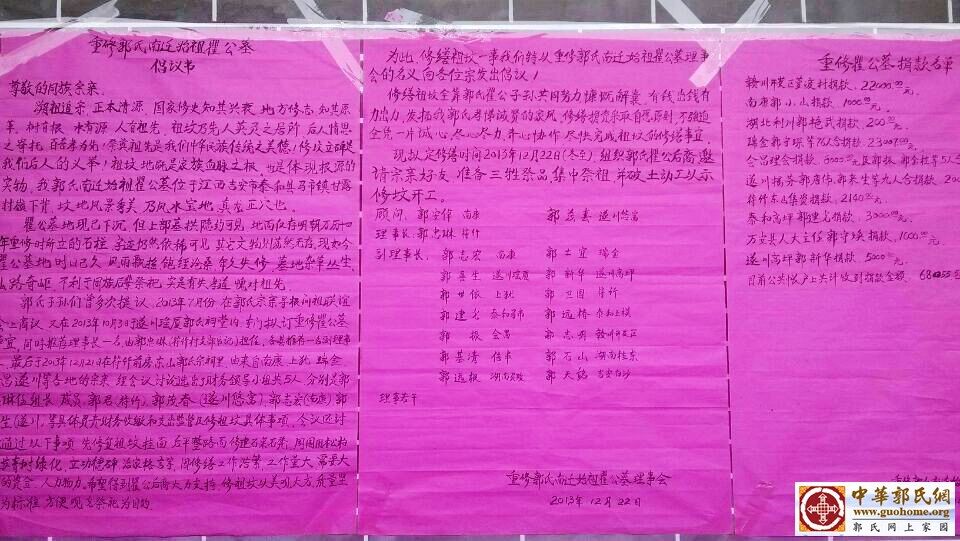 重修郭氏南迁始祖瞿公墓
倡议书
尊敬的同族宗亲
溯祖追宗,正本清源,国家修史知其兴衰,地方修志知其原
革,树有根,水有源,人有祖先,祖坟乃先人英灵之居所,后人情思
之寄托,百善孝为先,崇宗祭祖是我们中华民族传统之美德,修坟立碑是
我们后人的义举,祖坟地既是家族血脉之根,也是体现根源的
实物,我郭氏南迁始祖瞿公墓位于江西吉安市泰和县马市镇甘露
村旗下背,坟地风景秀美,乃风水宝地,真龙正穴也.
瞿公墓地现已下沉,但上部墓拱隐约可见,地面仅存明朝万历
年重修时所立的石柱,字迹仍然依稀可见,其它文物则荡然无存,现如今
瞿公墓地时以已久,风雨飘摇,饱经沧桑,年久失修,墓地杂草丛生,
山路奇岖,不利于同族群祭祀,实是有失孝道,愧对祖先
郭氏子孙们曾多次提议,2013年7月份在郭氏宗亲寻根问祖联谊
会上商议,又在2013年10月3日于遂川瑶厦郭氏祠堂内,专门拟订重修瞿公墓
事宜,同时推荐理事长一名,由郭忠琳(符竹村支部书记)担任,各县推荐一名副理事
,最后于2013年12月21日在符竹前房东山郭氏宗祠里,由来自南康 上犹 瑞金
昌遂川等各地的宗亲,经会议讨论选出了财务领导小组共5人,分别是郭
琳任组长,成员 郭君(符竹)郭茂春(遂川悠富)郭志宏(南康)郭
生(遂川),等具体负责财务收缴和支出监管及修祖坟具体事项,会议还讨
通过以下事项,先修复祖坟挂面,后平整路面,修建石桌石凳,周围围松柏
长青树绿化,立功德碑,治家格言等,因修缮工作浩繁,工作量大,需要大
的资金,人力物力,希望得到瞿公后裔大力支持,修祖坟以美观大方,质量
为标准,方便观光祭祀为目的.
为此,修缮祖坟一事我们特以重修郭氏南迁始祖瞿公墓理事
会的名义向各位宗亲发出倡议!
修缮祖坟全靠郭氏瞿公子孙共同努力慷慨解囊,有钱出钱有
力出力,发扬我郭氏孝悌诚善的家风,修缮捐资采取自愿原则,不强迫
全凭一片诚心,尽心尽力,齐心协作,尽快完成祖坟的修缮事宜.
现拟定修缮时间2013年12月22日(冬至)组织郭氏瞿公后裔,邀
请宗亲好友,准备三牲祭品,集中祭祖,并破土动工以示
修坟开工.
顾问,郭宗伟 南康 郭茂春 遂川悠富
理事长,郭忠琳 符竹
副理事长,郭志宏 南康 郭士宜 瑞金
郭喜生 遂川瑶厦 郭新华 遂川高坪
郭世依 上犹 郭卫国 符竹
郭建名 泰和马市 郭远桥 泰和上模
郭振 会昌 郭志勇 赣州开发区
郭基清 信丰 郭石山 湖南桂东
郭远振 湖南安陂 郭天铭 吉安白沙
理事若干
重修郭氏南迁始祖瞿公墓理事会
2013年 12月 22日
重修瞿公墓捐款名单
赣州开发区菱渡村捐款,22000.00元.
南康郭小山捐款 1000.00元.
湖北利川郭艳武捐款,200元.
瑞金郭宇琛等76人合捐款,23000.00元
会昌理金捐款,6000元
遂川接芳郭唐伟,郭来生等九人合捐款 200
符竹东山集资捐款,2140元.
泰和高坪郭建名捐款,3000元.
万安县人大主任郭守瑛捐款,1000元.
遂川高坪郭新华捐款 5000元.
目前公共帐户上共计收到捐款金额,
中華郭氏網
www.guohome.org
郭氏网上家园